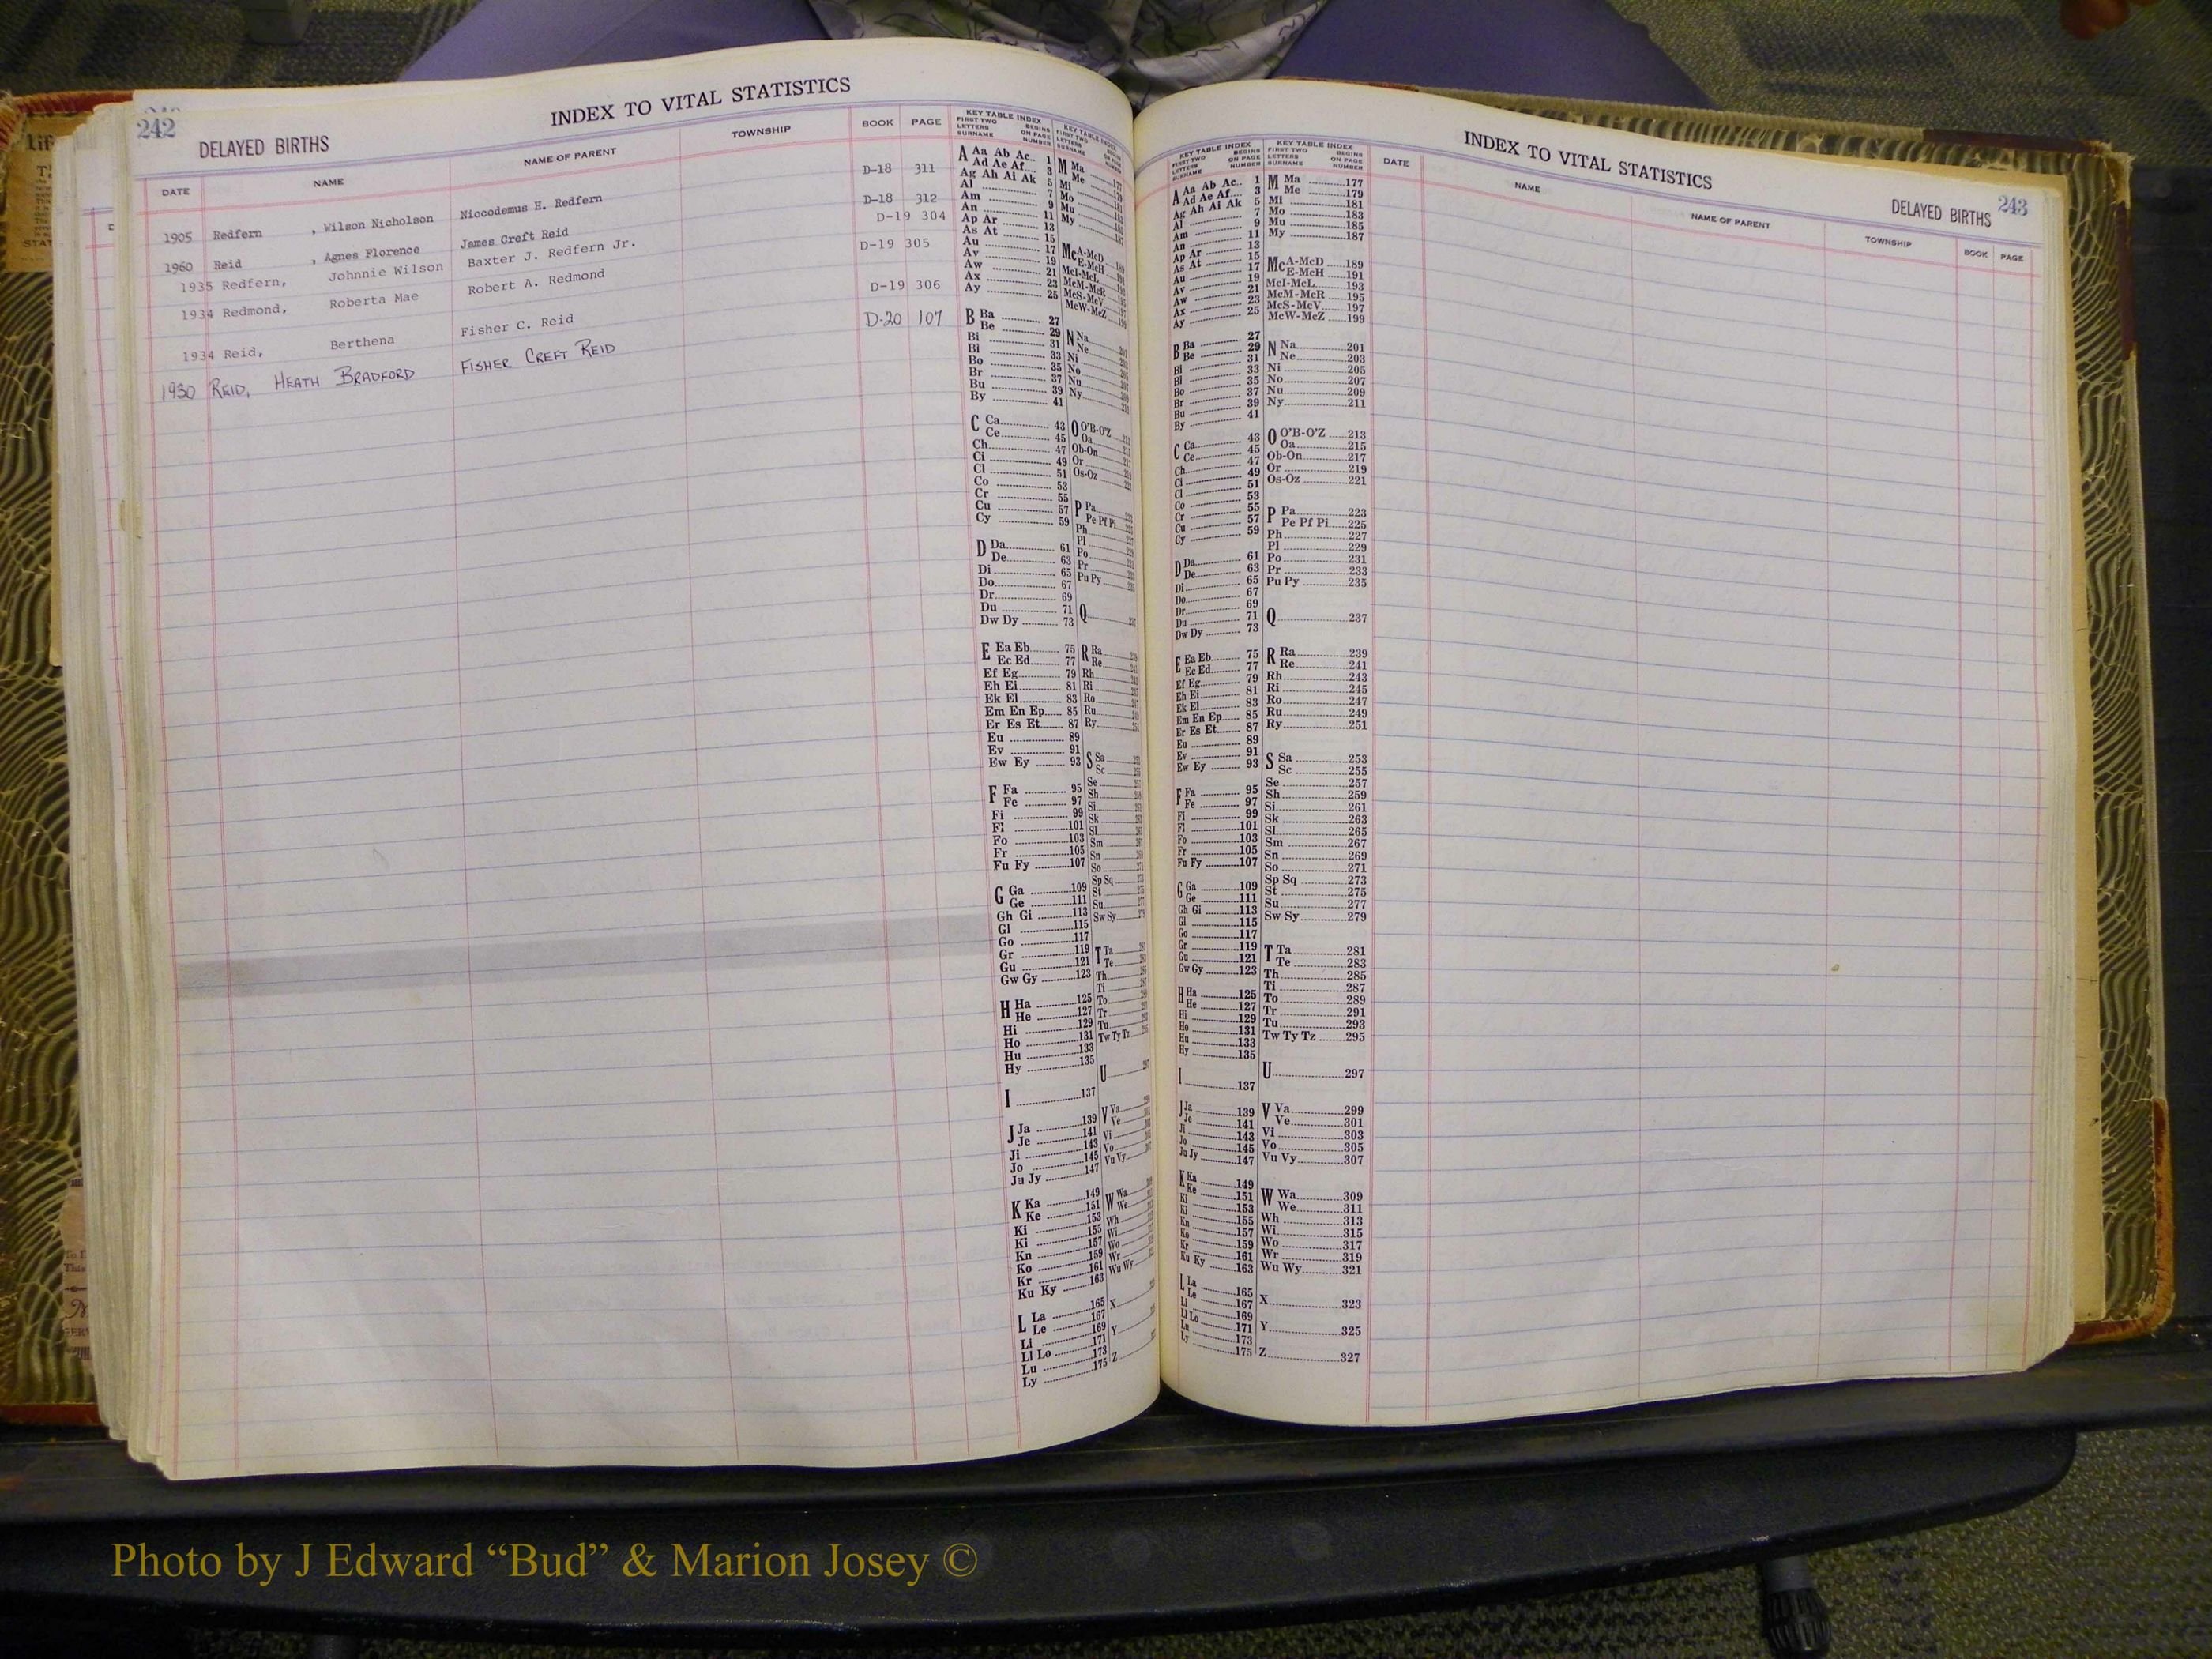 242
INDEX TO VITAL STATISTICS
DELAYED BIRTHS
DATE NAME NAME OF PARENT TOWNSHIP BOOK PAGE
1905 Redfern , Wilson Nicholson Niccodemus H. Redfern D-18 311
1960 Reid , Agnes Florence James Creft Reid D-18 312
1935 Redfern, Johnnie Wilson Baxter J. Redfern Jr. D-19 304
1934 Redmond, Roberta Mae Robert A. Redmond D-19 305
1934 Reid, Berthena Fisher C. Reid D-19 306
1930 REID, HEATH BRADFORD FISHER CREFT REID D-20 107
KEY TABLE INDEX
FIRST TWO LETTERS SURNAME BEGINS ON PAGE NUMBER
A Aa Ab Ac.. 1
Ad Ae Af.... 3
Ag Ah Ai Ak 5
Al 7
Am 9
An 11
Ap Ar 13
As At 15
Au 17
Av 19
Aw 21
Ax 23
Ay 25
B Ba 27
Be 29
Bi 31
Bl 33
Bo 35
Br 37
Bu 39
By 41
C Ca 43
Ce 45
Ch 47
Ci 49
Cl 51
Co 53
Cr 55
Cu 57
Cy 59
D Da 61
De 63
Di 65
Do 67
Dr 69
Du 71
Dw Dy 73
E Ea Eb 75
Ec Ed 77
Ef Eg 79
Eh Ei 81
Ek El 83
Em En Ep 85
Er Es Et 87
Eu 89
Ev 91
Ew Ey 93
F Fa 95
Fe 97
Fi 99
Fl 101
Fo 103
Fr 105
Fu Fy 107
G Ga 109
Ge 111
Gh Gi 113
Gl 115
Go 117
Gr 119
Gu 121
Gw Gy 123
H Ha 125
He 127
Hi 129
Ho 131
Hu 133
Hy 135
I 137
J Ja 139
Je 141
Ji 143
Jo 145
Ju Jy 147
K Ka 149
Ke 151
Ki 153
Ki 155
Kn 157
Ko 159
Kr 161
Ku Ky 163
L La 165
Le 167
Li 169
Ll Lo 171
Lu 173
Ly 175
243
INDEX TO VITAL STATISTICS
DELAYED BIRTHS
DATE NAME NAME OF PARENT TOWNSHIP BOOK PAGE
KEY TABLE INDEX
FIRST TWO LETTERS SURNAME BEGINS ON PAGE NUMBER
M Ma 177
Me 179
Mi 181
Mo 183
Mu 185
My 187
Mc A-McD 189
E-McH 191
McI-McL 193
McM-McR 195
McS-McV 197
McW-McZ 199
N Na 201
Ne 203
Ni 205
No 207
Nu 209
Ny 211
O O'B-O'Z 213
Oa 215
Ob-On 217
Or 219
Os-Oz 221
P Pa 223
Pe Pf Pi 225
Ph 227
Pl 229
Po 231
Pr 233
Pu Py 235
Q 237
R Ra 239
Re 241
Rh 243
Ri 245
Ro 247
Ru 249
Ry 251
S Sa 253
Sc 255
Se 257
Sh 259
Si 261
Sk 263
Sl 265
Sm 267
Sn 269
So 271
Sp Sq 273
St 275
Su 277
Sw Sy 279
T Ta 281
Te 283
Th 285
Ti 287
To 289
Tr 291
Tu 293
Tw Ty Tz 295
U 297
V Va 299
Ve 301
Vi 303
Vo 305
Vu Vy 307
W Wa 309
We 311
Wh 313
Wi 315
Wo 317
Wr 319
Wu Wy 321
X 323
Y 325
Z 327
Photo by J Edward “Bud” & Marion Josey ©